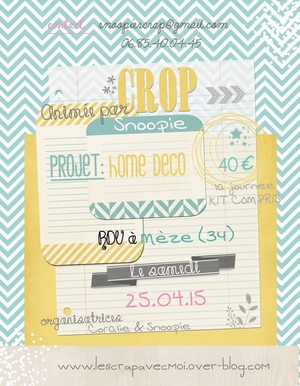 contact snoopiescrap@gmail.com
06.85.40.04.45
CROP
Animée par
Snoopie
PROJET: Home Deco
40 €
la journée
KIT COMPRIS
RDV à mèze (34)
le samedi
25.04.15
organisatrices:
Coralie & Snoopie
www.lescrapavecmoi.over-blog.com